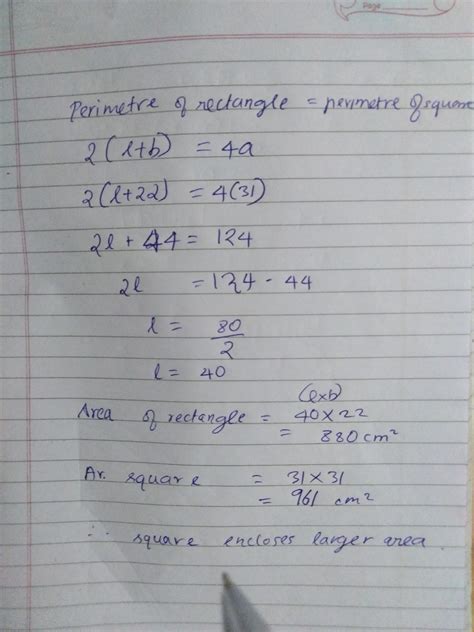 Page
Perimetre of rectangle = perimetre of square
2(l+b) = 4a
2(l+22) = 4(31)
2l + 44 = 124
2l = 124 - 44
l = 80/2
l = 40
(l×b)
Area of rectangle = 40×22
= 880 cm²
Ar. square = 31×31
= 961 cm²
∴ square encloses larger area.